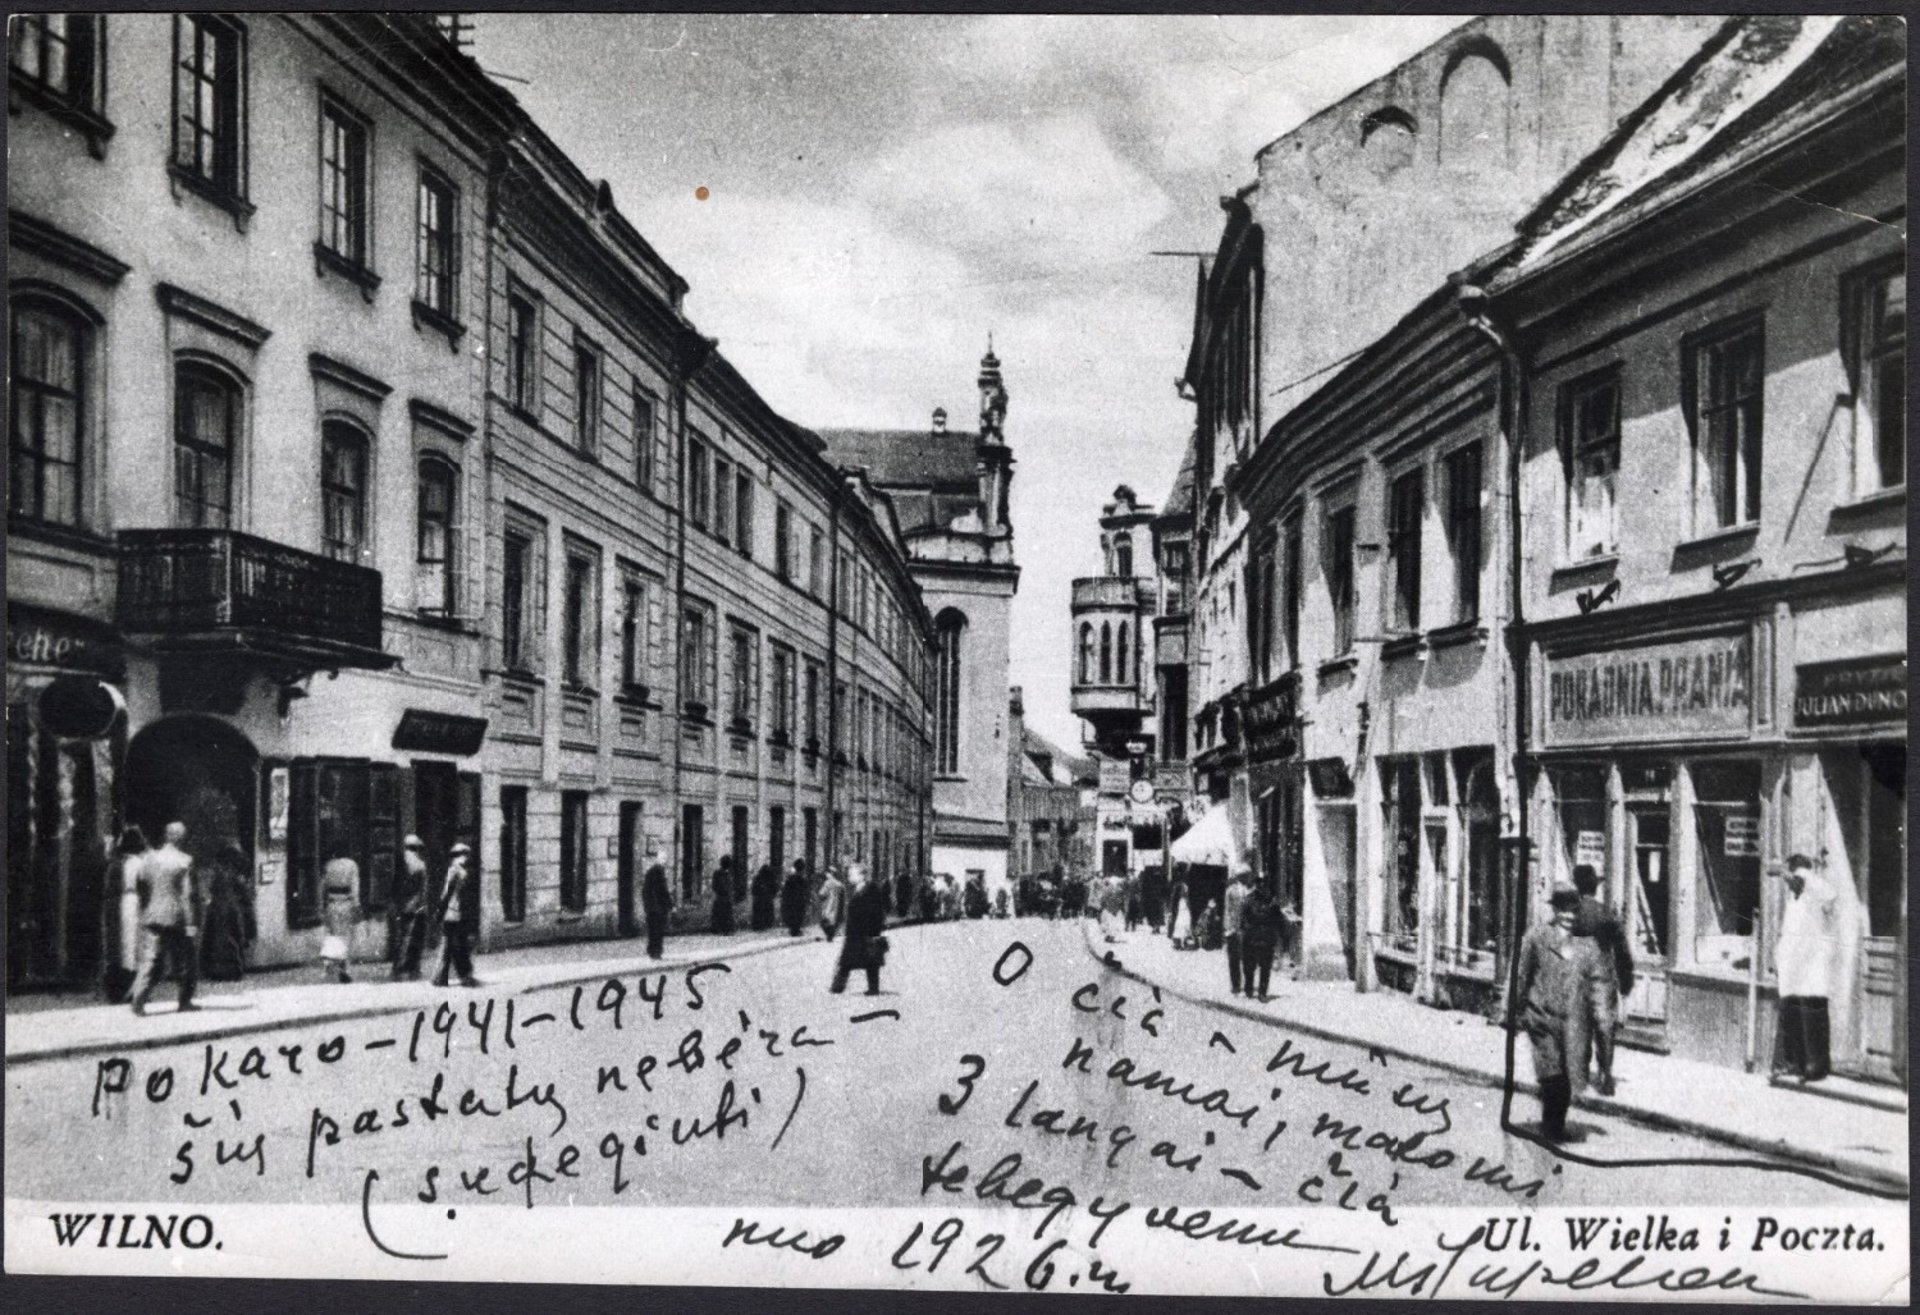 PORADNIA PRANIA
JULIAN
Po karo – 1941–1945
šių pastatų nebėra –
(sudeginti)
O čia – mūsų
namai, matomi
3 langai – čia
tebegyvenu
nuo 1926 m.
WILNO.
Ul. Wielka i Poczta.